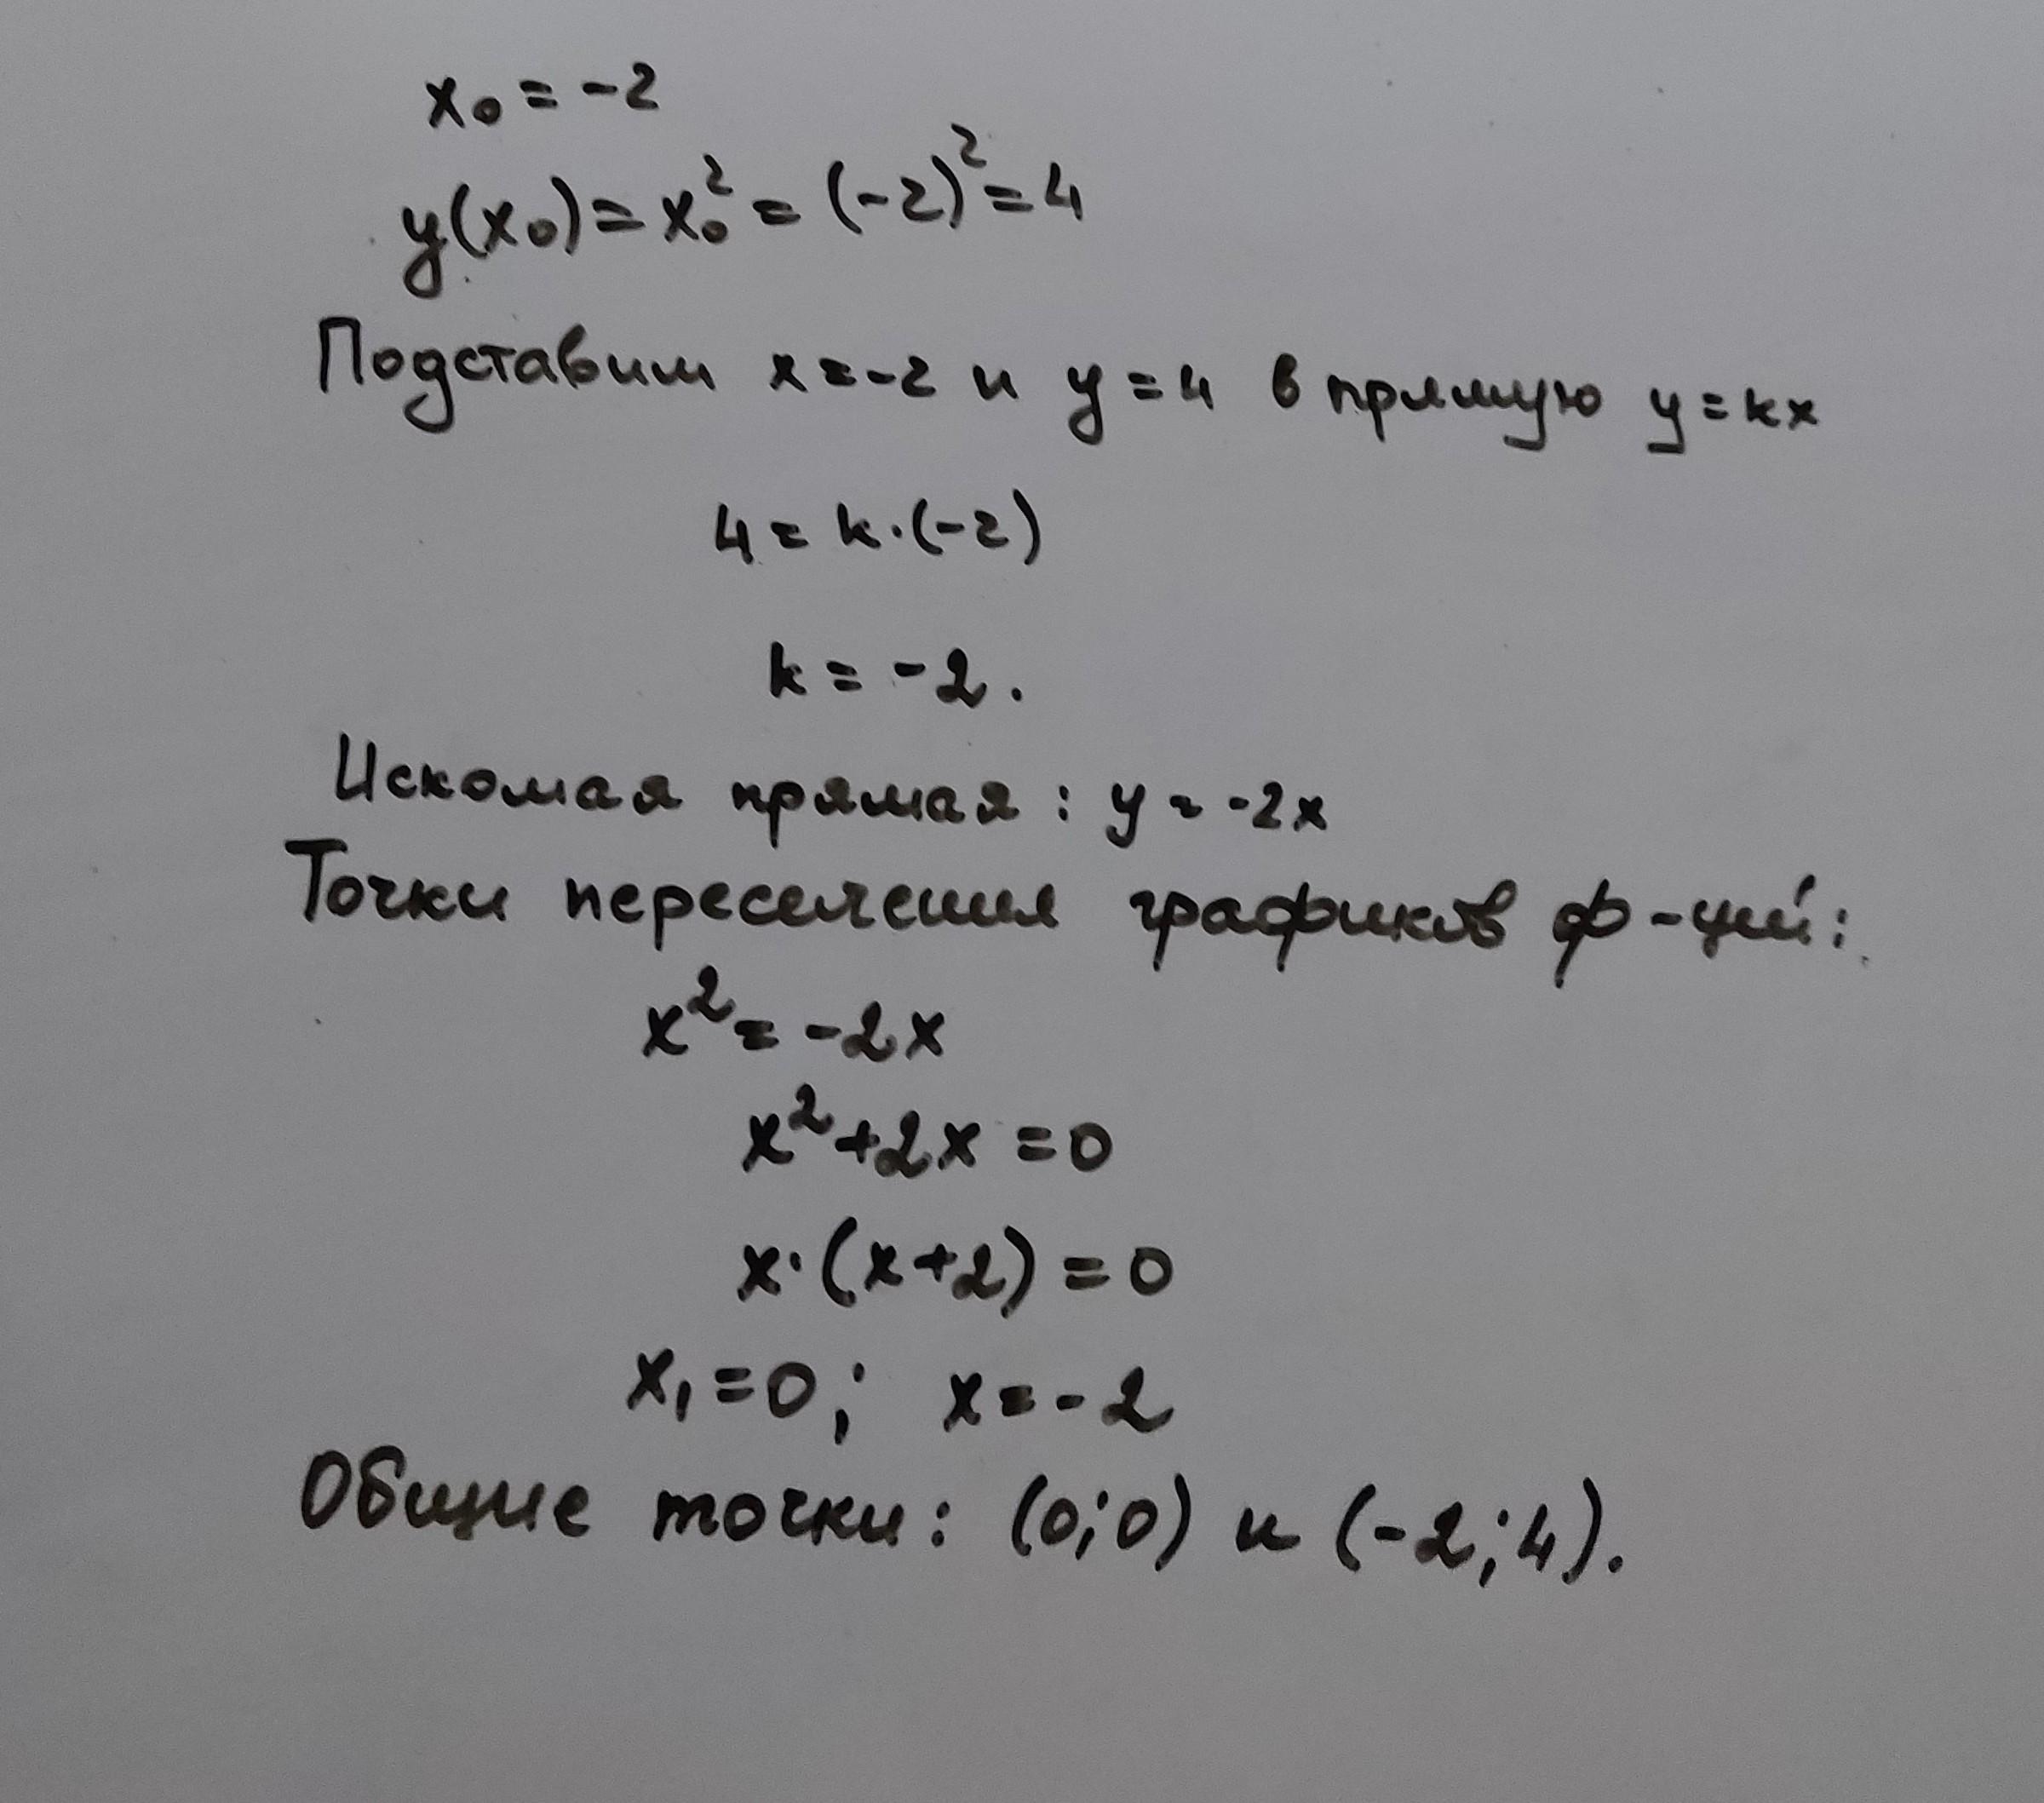 x₀ = -2
y(x₀) = x₀² = (-2)² = 4
Подставим x = -2 и y = 4 в прямую y = kx
4 = k·(-2)
k = -2.
Искомая прямая : y = -2x
Точки пересечения графиков ф-ций:
x² = -2x
x² + 2x = 0
x·(x+2) = 0
x₁ = 0; x = -2
Общие точки: (0;0) и (-2;4).